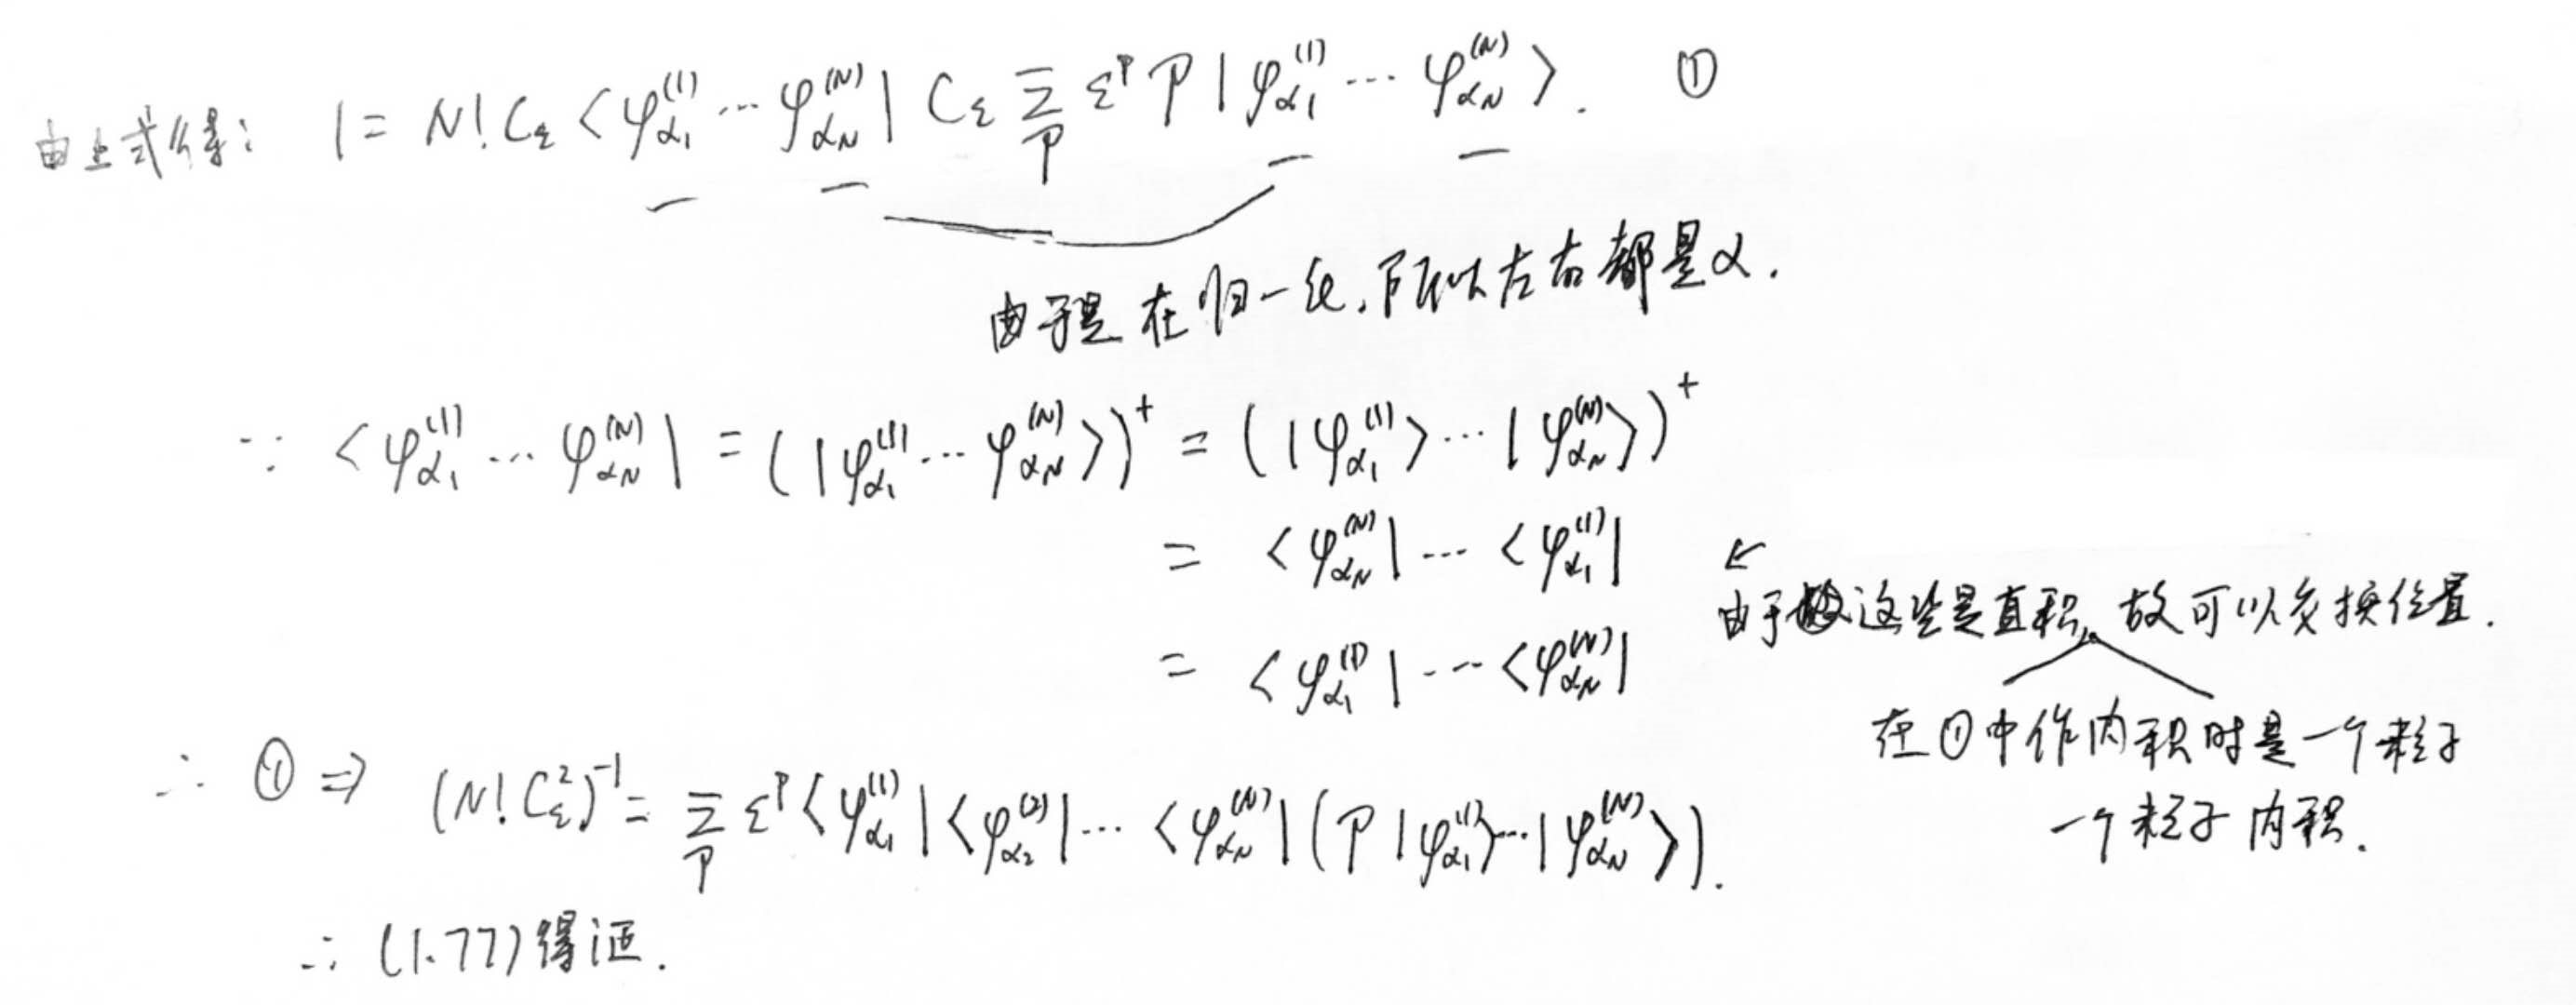 由上式得: 1 = N! C_ε <φ_{α1}^{(1)} ⋯ φ_{αN}^{(N)}| C_ε Σ_P ε^P P |φ_{α1}^{(1)} ⋯ φ_{αN}^{(N)}>. ①
由于是在归一化,所以左右都是α.
∵ <φ_{α1}^{(1)} ⋯ φ_{αN}^{(N)}| = (|φ_{α1}^{(1)} ⋯ φ_{αN}^{(N)}>)^+ = (|φ_{α1}^{(1)}> ⋯ |φ_{αN}^{(N)}>)^+
= <φ_{αN}^{(N)}| ⋯ <φ_{α1}^{(1)}| ←
由于这些是直积,故可以交换位置.
= <φ_{α1}^{(1)}| ⋯ <φ_{αN}^{(N)}|
在①中作内积时是一个粒子
一个粒子内积.
∴ ① ⇒ (N! C_ε^2)^{-1} = Σ_P ε^P <φ_{α1}^{(1)}|<φ_{α2}^{(2)}| ⋯ <φ_{αN}^{(N)}| (P |φ_{α1}^{(1)}> ⋯ |φ_{αN}^{(N)}>).
∴ (1.77) 得证.